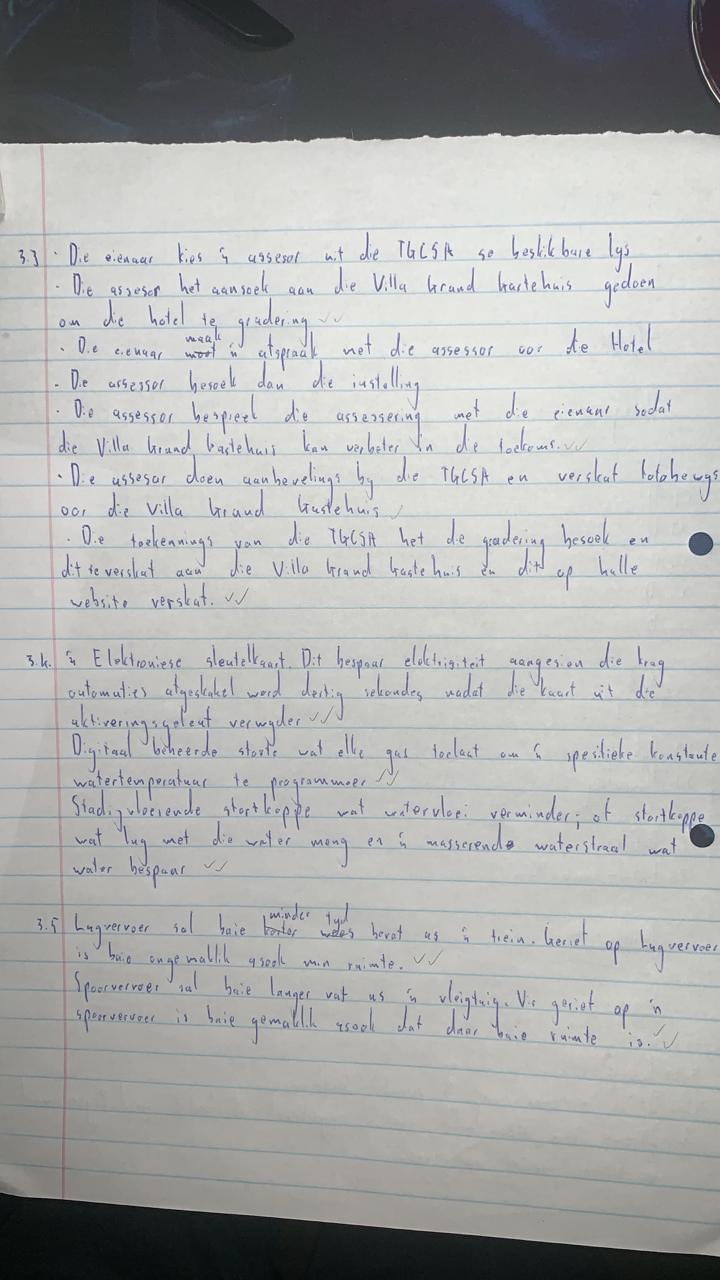 3.3 · Die eienaar kies 'n assesor uit die TGCSA se beskikbare lys
· Die assesor het aansoek aan die Villa Grand Gastehuis gedoen
om die hotel te gradering ✓✓
· Die eienaar maak 'n afspraak met die assessor oor die Hotel
· Die assessor besoek dan die instelling
· Die assessor bespreek die assessering met die eienaar sodat
die Villa Grand Gastehuis kan verbeter in die toekoms. ✓✓
· Die assesor doen aanbevelings by die TGCSA en verskaf fotobewys
oor die Villa Grand Gastehuis ✓
· Die toekennings van die TGCSA het die gradering besoek en
dit te verskaf aan die Villa Grand Gastehuis en dit op hulle
website verskaf. ✓✓
3.4. 'n Elektroniese sleutelkaart. Dit bespaar elektrisiteit aangesien die krag
automaties afgeskakel word dertig sekondes nadat die kaart uit die
aktiveringsgleuf verwyder ✓✓
Digitaal beheerde storte wat elke gas toelaat om 'n spesifieke konstante
watertemperatuur te programmeer ✓✓
Stadigvloeiende stortkoppe wat watervloei verminder; of stortkoppe
wat lug met die water meng en 'n masserende waterstraal wat
water bespaar ✓✓
3.5 Lugvervoer sal baie minder tyd bevat as 'n trein. Gerief op Lugvervoer
is baie ongemaklik asook min ruimte. ✓✓
Spoorvervoer sal baie langer vat as 'n vleigtuig. Vir gerief op 'n
spoorvervoer is baie gemaklik asook dat daar baie ruimte is. ✓✓